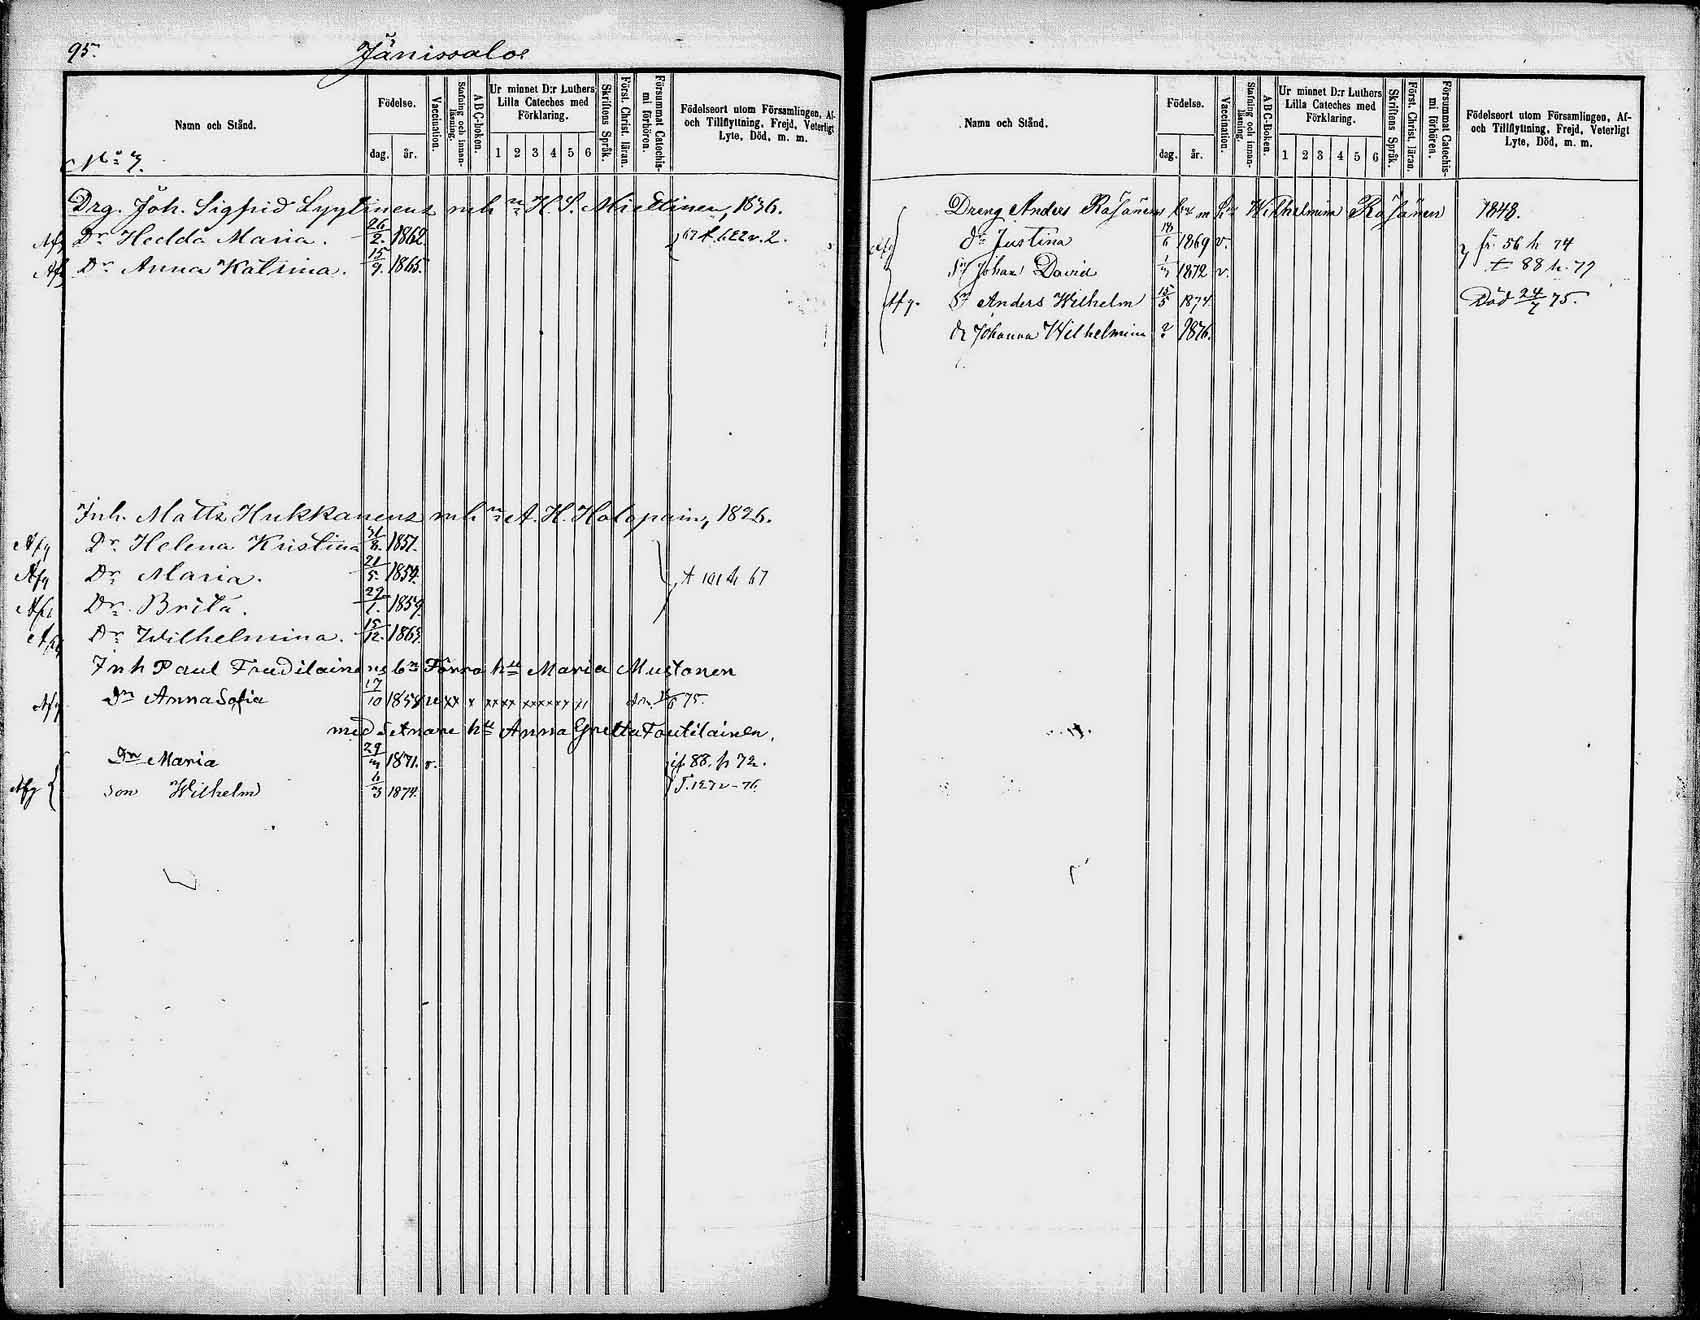 95.
Jänissalos
Namn och Stånd.
Födelse.
dag. år.
Vaccination.
Stafning och innan-läsning.
ABC-boken.
Ur minnet D:r Luthers Lilla Cateches med Förklaring.
1 2 3 4 5 6
Skriftens Språk.
Först. Christ. läran.
Försummat Catechis-mi förhören.
Födelseort utom Församlingen, Af- och Tillflyttning, Frejd, Veterligt Lyte, Död, m. m.
No 7.
Drg. Joh. Sigfrid Lyytinens enk n H. S. Miettinen, 1836.
Afg Dr Hedda Maria. 26/2. 1862.
Afg Dr Anna Katrina. 15/9. 1865.
Inh. Matts Hukkanens enk n A. H. Holopain, 1826.
Afg Dr Helena Kristina 31/8. 1851.
Afg Dr Maria. 21/5. 1854. t 101 h 67
Afg Dr Brita. 29/1. 1859.
Afg Dr Wilhelmina. 15/12. 1865.
Inh Paul Fredilainens bn Förra hu Maria Mustonen
Afg Dn Anna Sofia 17/10 1858
med Senare hu Anna Gretta Toutilainen.
Dn Maria 29/3 1871. v. if 88. h 72.
Afg son Wilhelm 6/3 1874.
Namn och Stånd.
Födelse.
dag. år.
Vaccination.
Stafning och innan-läsning.
ABC-Boken.
Ur minnet D:r Luthers Lilla Cateches med Förklaring.
1 2 3 4 5 6
Skriftens Språk.
Först. Christ. läran.
Försummat Catechis-mi förhören.
Födelseort utom Församlingen, Af- och Tillflyttning, Frejd, Veterligt Lyte, Död, m. m.
Dreng Anders Räsänens bn m hu Wilhelmina Räsänen 1848.
Afg dr Justina 18/6 1869 v. fr. 56 h 74
Sn Johan David 1/3 1872 v. t 88 h. 77
Afg. Sn Anders Wilhelm 15/5 1874. Död 24/7 75.
dr Johanna Wilhelmina 1876.